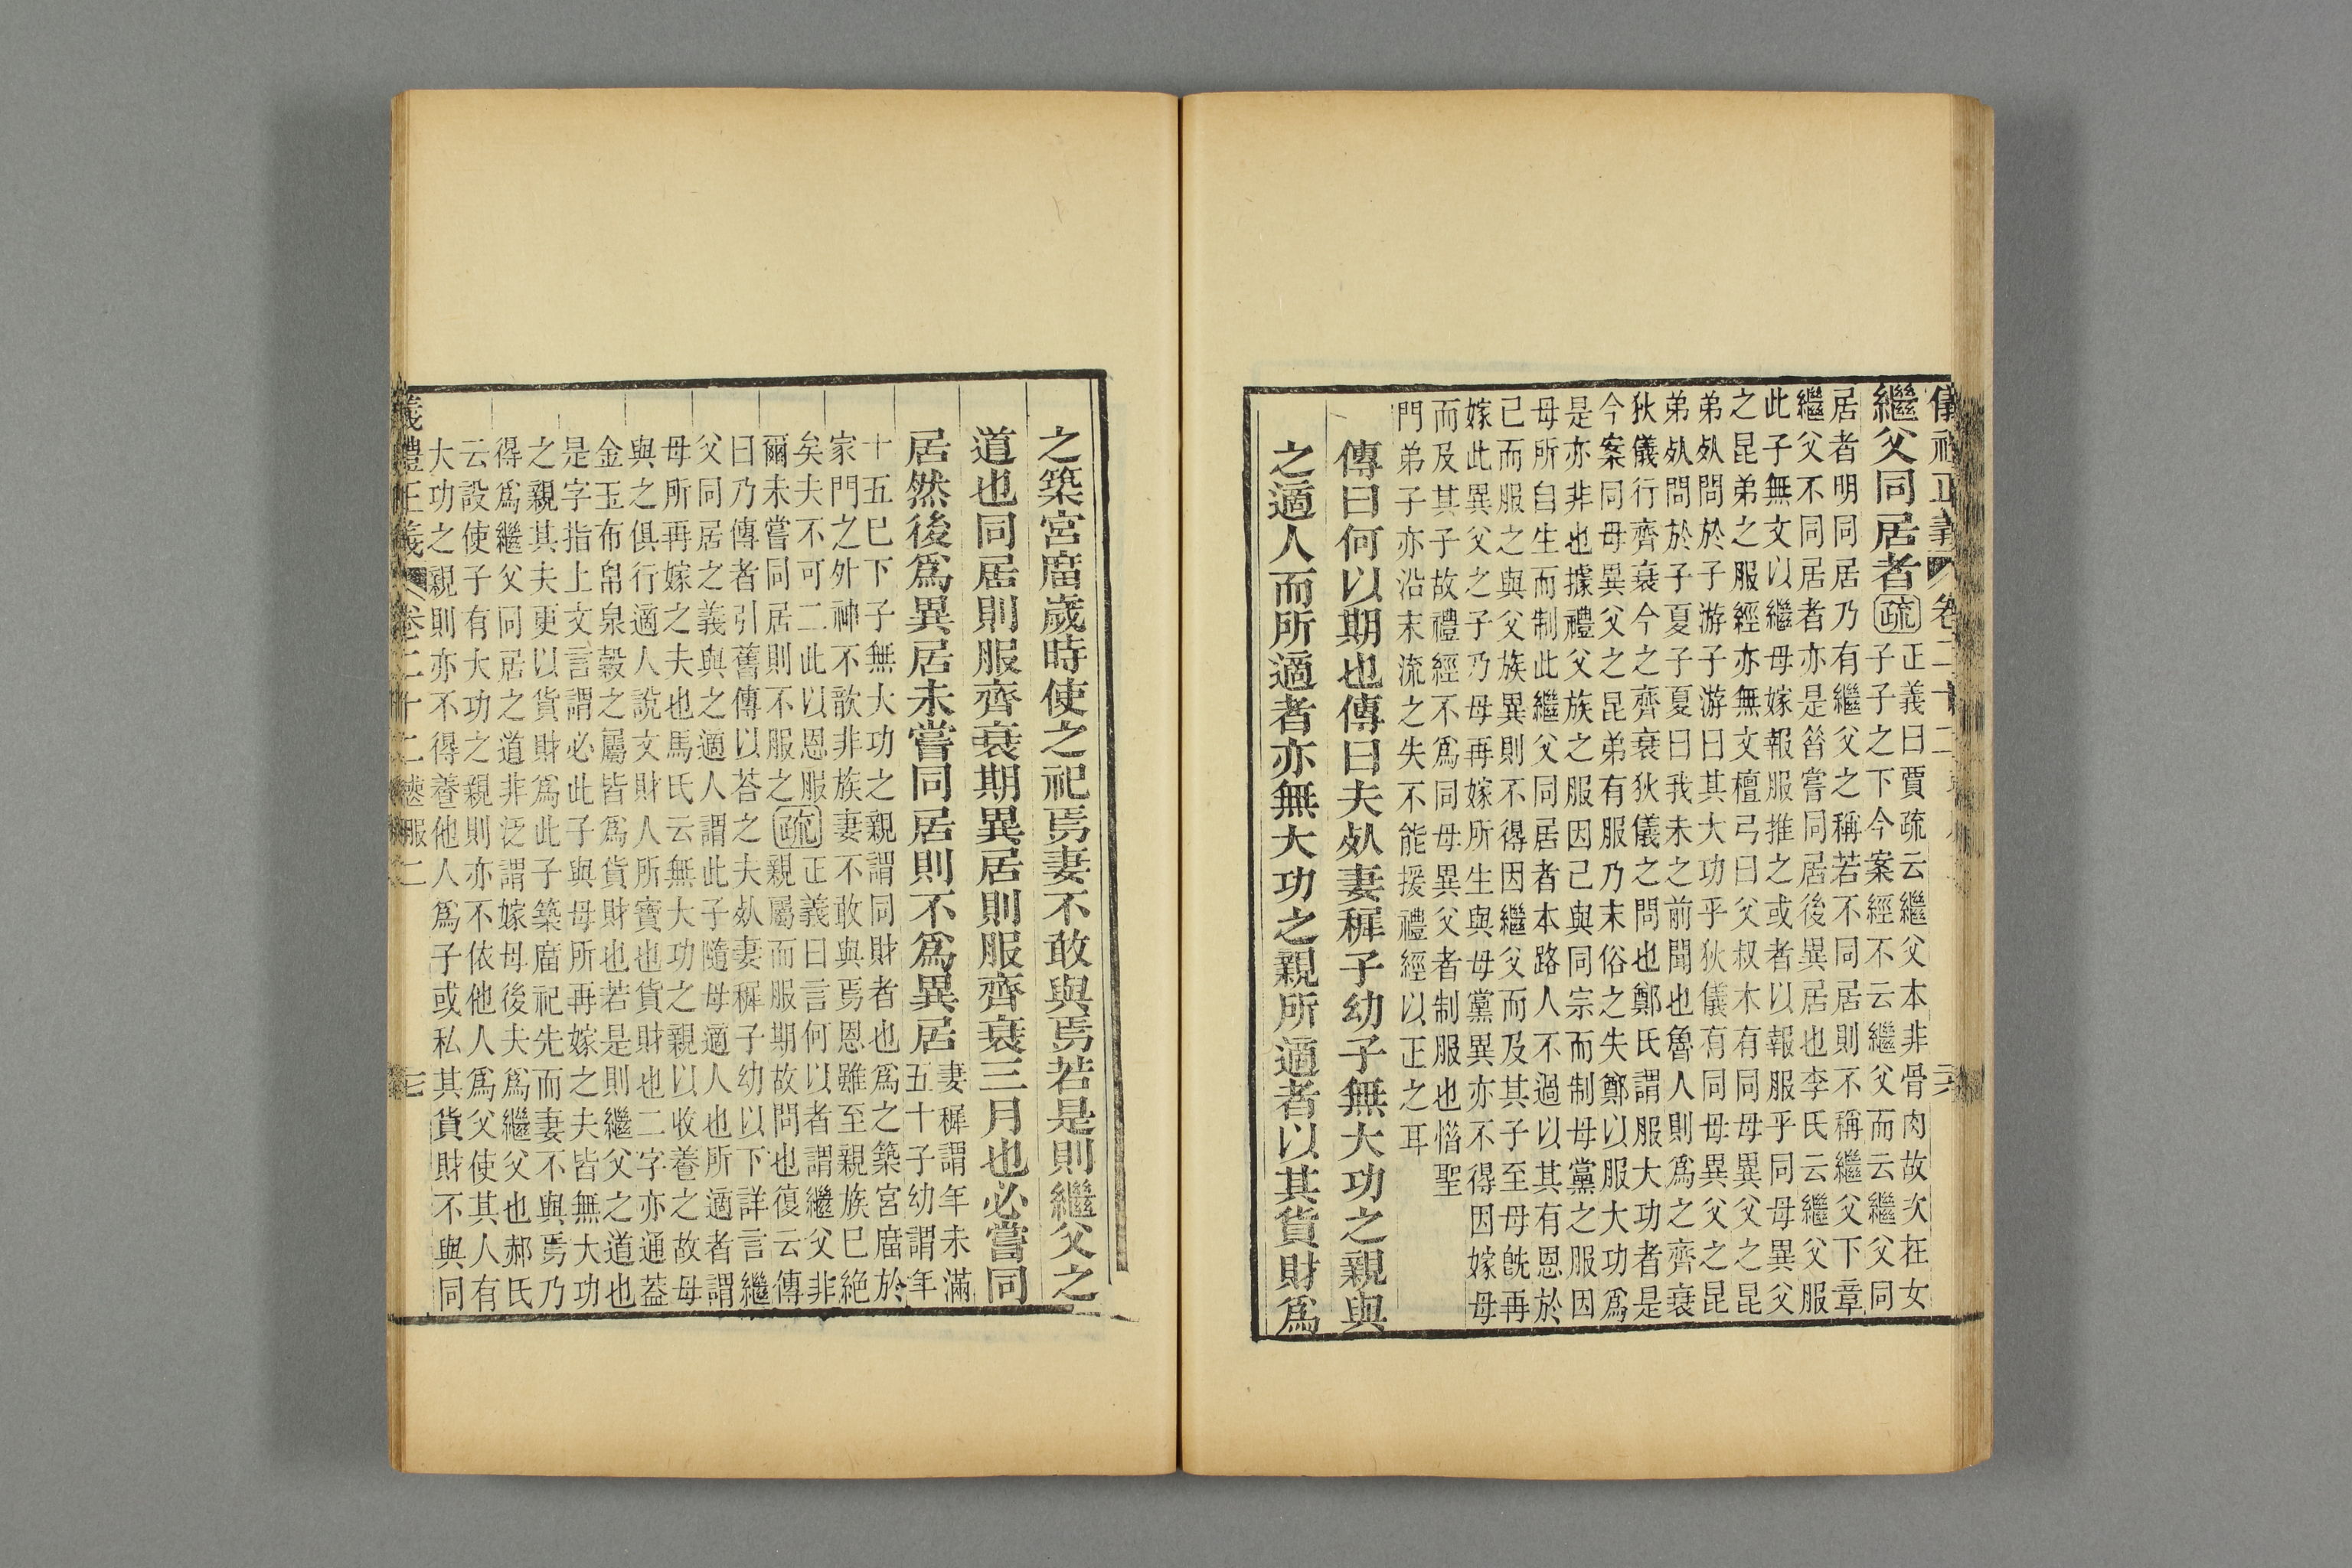 儀禮正義 卷二十二
繼父同居者 疏 正義曰賈疏云繼父本非骨肉故次在女
子子之下今案經不云繼父而云繼父同
居者明同居乃有繼父之稱若不同居則不稱繼父下章
繼父不同居者亦是㫺嘗同居後異居也李氏云繼父服
此子無文以繼母嫁報服推之或者以報服乎同母異父
之昆弟之服經亦無文檀弓曰父叔木有同母異父之昆
弟死問於子游子游曰其大功乎狄儀有同母異父之昆
弟死問於子夏子夏曰我未之前聞也魯人則爲之齊衰
狄儀行齊衰今之齊衰狄儀之問也鄭氏謂服大功者是
今案同母異父之昆弟有服乃末俗之失鄭以服大功爲
是亦非也據禮父族之服因己與同宗而制母黨之服因
母所自生而制此繼父同居者本路人不過以其有恩於
己而服之與父族異則不得因繼父而及其子至母旣再
嫁此異父之子乃母再嫁所生與母黨異亦不得因嫁母
而及其子故禮經不爲同母異父者制服也惜聖
門弟子亦沿末流之失不能援禮經以正之耳
傳曰何以期也傳曰夫死妻穉子幼子無大功之親與
之適人而所適者亦無大功之親所適者以其貨財爲
之築宮廟歲時使之祀焉妻不敢與焉若是則繼父之
道也同居則服齊衰期異居則服齊衰三月也必嘗同
居然後爲異居未嘗同居則不爲異居 妻穉謂年未滿
五十子幼謂年
十五已下子無大功之親謂同財者也爲之築宮廟於
家門之外神不歆非族妻不敢與焉恩雖至親族已絕
矣夫不可二此以恩服
爾未嘗同居則不服之 疏 正義曰言何以者謂繼父非
親屬而服期故問也復云傳
曰乃傳者引舊傳以荅之夫死妻穉子幼以下詳言繼
父同居之義與之適人謂此子隨母適人也所適者謂
母所再嫁之夫也馬氏云無大功之親以收養之故母
與之俱行適人說文財人所寶也貨財也二字亦通葢
金玉布帛泉穀之屬皆爲貨財也若是則繼父之道也
是字指上文言謂必此子與母所再嫁之夫皆無大功
之親其夫更以貨財爲此子築廟祀先而妻不與焉乃
得爲繼父同居之道非泛謂嫁母後夫爲繼父也郝氏
云設使子有大功之親則亦不依他人爲父使其人有
大功之親則亦不得養他人爲子或私其貨財不與同
儀禮正義 卷二十二 喪服二